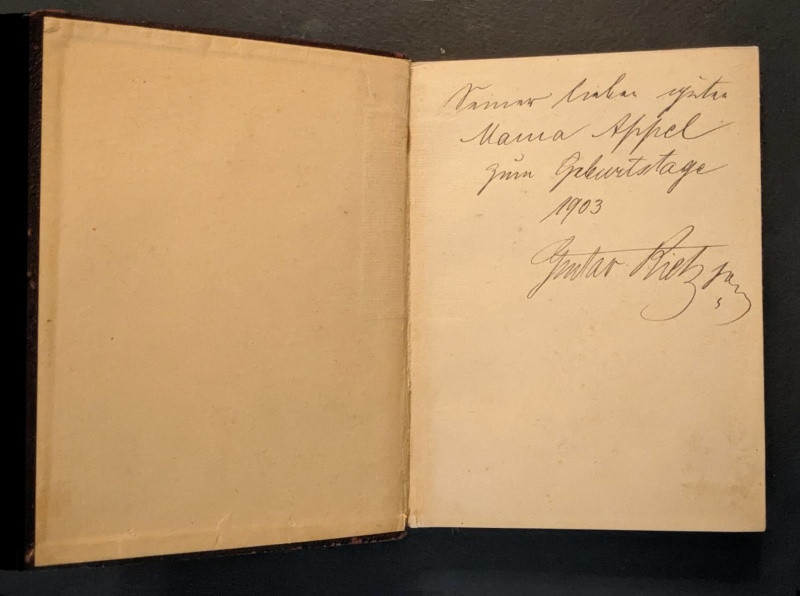 Seiner lieben guten
Mama Appel
zum Geburtstage
1903
Gustav Rietz jun